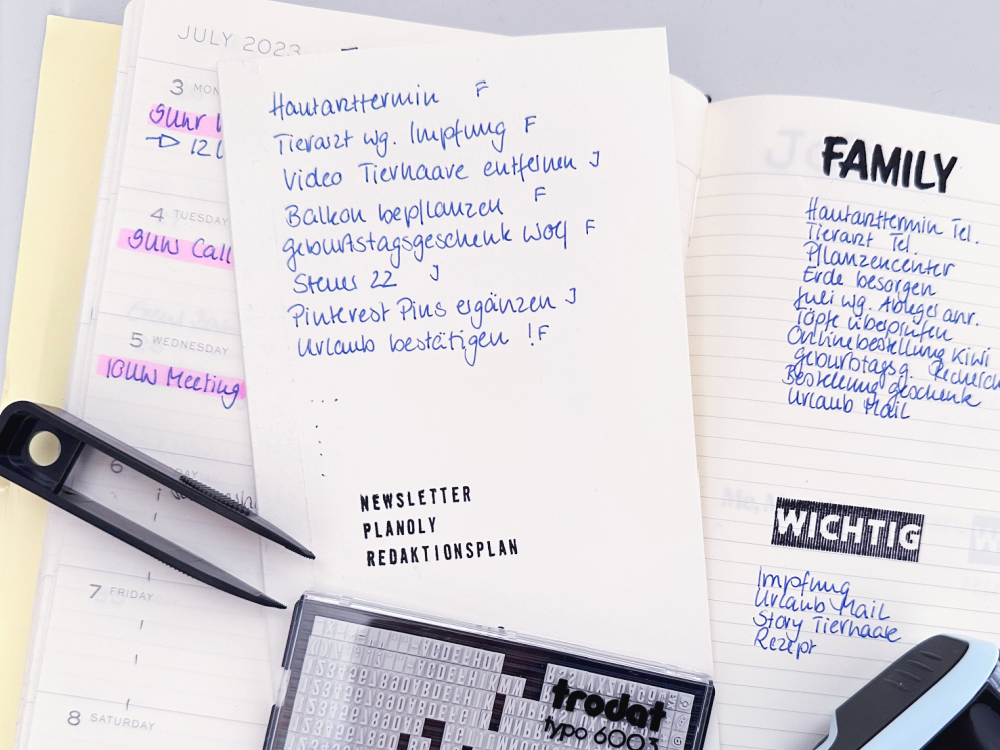 JULY 2023
3 MON
9Uhr
→ 12 U
4 TUESDAY
9Uhr Call
5 WEDNESDAY
10Uhr Meeting
6
7 FRIDAY
8 SATURDAY
Hautarzttermin F
Tierarzt wg. Impfung F
Video Tierhaare entfernen J
Balkon bepflanzen F
Geburtstagsgeschenk Wolf F
Steuer 22 J
Pinterest Pins ergänzen J
Urlaub bestätigen !F
...
NEWSLETTER
PLANOLY
REDAKTIONSPLAN
trodat
typo 6003
FAMILY
Hautarzttermin Tel.
Tierarzt Tel.
Pflanzencenter
Erde besorgen
Juli wg. Ableger anr.
Töpfe überprüfen
Onlinebestellung Kiwi
Geburtstagsg. Recherch
Bestellung Geschenk
Urlaub Mail
WICHTIG
Impfung
Urlaub Mail
Story Tierhaare
Rezept